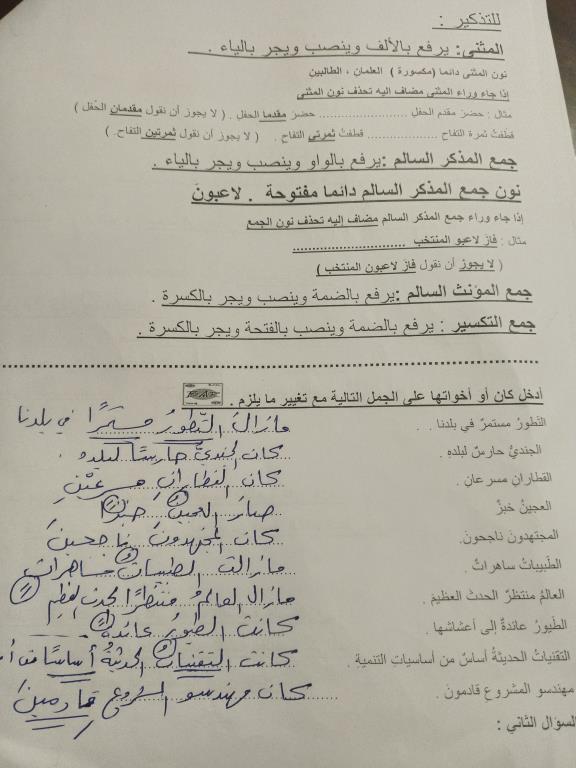 للتذكير :
المثنى: يرفع بالألف وينصب ويجر بالياء .
نون المثنى دائما (مكسورة ) العلمانِ ، الطالبينِ
إذا جاء وراء المثنى مضاف اليه تحذف نون المثنى
مثال : حضرَ مقدم الحفلِ ........................ حضرَ مقدما الحفل . ( لا يجوز أن نقول مقدمان الحفل )
قطفتُ ثمرة التفاح .................. قطفتُ ثمرتي التفاح . ( لا يجوز أن نقول ثمرتين التفاح. )
جمع المذكر السالم :يرفع بالواو وينصب ويجر بالياء .
نون جمع المذكر السالم دائما مفتوحة . لاعبونَ
إذا جاء وراء جمع المذكر السالم مضاف إليه تحذف نون الجمع
مثال : فازَ لاعبو المنتخب ............................
( لا يجوز أن نقول فازَ لاعبون المنتخب )
جمع المؤنث السالم :يرفع بالضمة وينصب ويجر بالكسرة .
جمع التكسير : يرفع بالضمة وينصب بالفتحة ويجر بالكسرة .
أدخل كان أو أخواتها على الجمل التالية مع تغيير ما يلزم .
التّطورُ مستمرٌ في بلدنا . مازالَ التّطورُ مستمرًا في بلدنا
الجنديُّ حارسٌ لبلدهِ . كان الجنديُّ حارسًا لبلده .
القطارانِ مسرعانِ . كان القطارانِ مسرعَيْنِ
العجينُ خبزٌ صارَ العجينُ خبزًا
المجتهدونَ ناجحونَ. كان المجتهدونَ ناجحينَ
الطّبيباتُ ساهراتٌ . مازالت الطبيباتُ ساهراتٍ
العالمُ منتظرٌ الحدثَ العظيمَ . مازال العالمُ منتظرًا الحدث العظيم
الطّيورُ عائدةٌ إلى أعشاشها . كانت الطيورُ عائدةً
التقنياتُ الحديثةُ أساسٌ من أساسياتِ التنميةِ . كانت التقنياتُ الحديثةُ أساسًا من
مهندسو المشروعِ قادمون . كان مهندسو المشروع قادمينَ
السؤال الثاني :